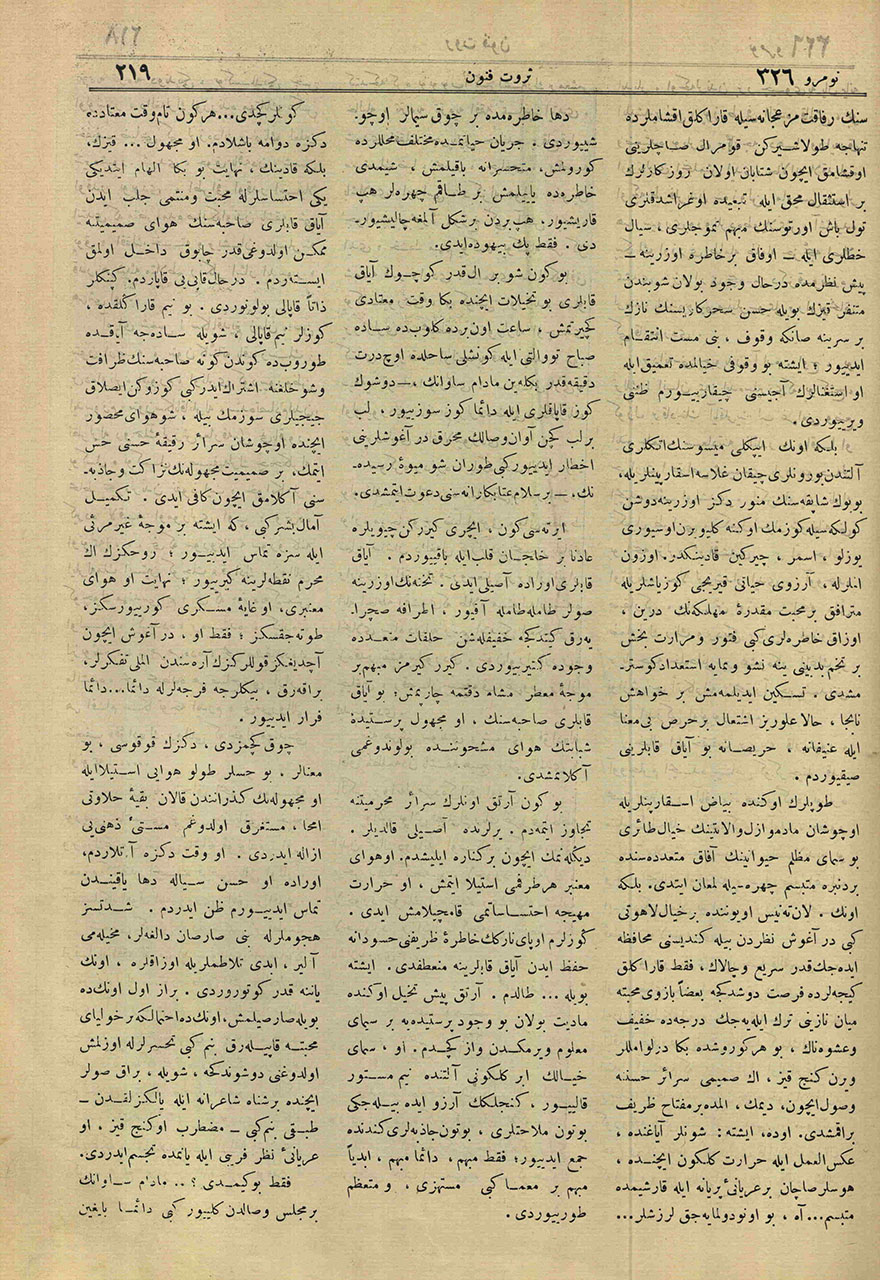 نومرو ٣٢٦
ثروت فنون
٢١٩
سنك رفاقت مزعجانه‌سیله قارا كلق اقشاملرده
تنهاجه طولاشیركن قومرال صاچلرینی
اوقشامق ایچون شتابان اولان روزكارلرك
بر استثقال محق ایله تبعیده اوغراشدقلری
تول باش اورتوسنك مبهم تموجلری، سیال
خطلری ایله ــ اوفاق برخاطره اوزرینه ــ
پیش نظرمده درحال وجود بولان شوبندن
متنفر قیزك بویله حسن سحركاریسنك نازك
بر سرینه صانكه وقوف، بنی مست انتقام
ایدییور؛ ایشته بو وقوفی خیالمده تعمیق ایله
او استغنالرك آجیسنی چیقارییورم ظنی
ویرییوردی.
بلكه اونك ایپكلی میسوسنك اتكلری
آلتندن بورونلری چیقان غلاسه اسقارپینلریله،
بویوك شابقه‌سنك منور دكز اوزرینه دوشن
كولكه‌سیله كوزمك اوكنه كلیویرن اوسیوری
یوزلو، اسمر، چیركین قادیندكدر. اوزون
انلرله، آرزوی حیاتی قیریجی كوزیاشلریله
مترافق برمحبت مقدرهٔ مهلكه‌نك درین،
اوزاق خاطره‌لری كبی فتور ومرارت بخش
بر تخم بدبینی ینه نشو ونمایه استعداد كوستر-
مشدی. تسكین ایدیله‌مه‌مش بر خواهش
نابجا، حالا علوریز اشتعال برحرص بی‌معنا
ایله عنیفانه، حریصانه بو آیاق قابلرینی
صیقیوردم.
طوپلرك اوكنده بیاض اسقارپینلریله
اوچوشان مادموازل والانتینك خیال طائری
بو سمای مظلم حیوانینك آفاق متعدده‌سنده
بردنبره متبسم چهره‌سیله لمعان ایتدی. بلكه
اونك. لان‌ته‌نیس اویوننده برخیال لاهوتی
كبی در آغوش نظردن بیله كندیسنی محافظه
ایده‌جك قدر سریع وچالاك، فقط قارا كلق
كیجه‌لرده فرصت دوشدكجه بعضاً بازوی محبته
میان نازینی ترك ایله‌یه‌جك درجه‌ده خفیف
وعشوه‌ناك، بو هركوروشده بكا درلو املر
ویرن كنج قیز، اك صمیمی سرائر حسنه
وصول ایچون، دیمك، المده بر مفتاح ظریف
براقمشدی. اوده، ایشته: شونلر آیاغنده،
عكس‌العمل ایله حرارت كلكون ایچنده،
هوسلر صاچان بر عریانیٔ پریانه ایله قارشیمده
متبسم... آه، بو اونودولمایه‌جق لرزشلر...
دها خاطره‌مده بر چوق سیمالر اوچو-
شییوردی. جریان حیاتمده مختلف محللرده
كورولمش، متحسرانه باقیلمش، شیمدی
خاطره‌ده یاپیلمش بر طاقم چهره‌لر هپ
قاریشیور. هپ بردن برشكل آلمغه چالیشیور-
دی. فقط پك بیهوده ایدی.
بو كون شو بر ال قدر كوچوك آیاق
قابلری بو تخیلات ایچنده بكا وقت معتادی
كچیرتمش، ساعت اون برده كلوب‌ده ساده
صباح تووالتی ایله كونشلی ساحلده اوچ درت
دقیقه قدر بكله‌ین مادام ساوانك، ــ دوشوك
كوز قاپاقلری ایله دائما كوز سوزییور، لب
برلب كچن آوان وصالك محرق در آغوشلرینی
اخطار ایدییور كبی طوران شو میوهٔ رسیده-
نك، ــ برسلام عتابكارانه‌سنی دعوت ایتمشدی.
ایرته‌سی كون، ایچری كیرركن چیویلره
عادتا بر خلجان قلب ایله باقییوردم. آیاق
قابلری اوراده آصیلی ایدی. تخته‌نك اوزرینه
صولر طامله طامله آقیور، اطرافه صچرا-
یه‌رق كیتدكجه خفیفله‌شن حلقات متعدده
وجوده كتیرییوردی. كیرر كیرمز مبهم بر
موجهٔ معطر مشام دقتمه چارپمش؛ بو آیاق
قابلری صاحبه‌سنك، او مجهول پرستیدهٔ
شبابتك هوای مشحوننده بولوندوغمی
آكلامشدی.
بو كون آرتق اونلرك سرائر محرمیتنه
تجاوز ایتمه‌دم. یرلرنده آصیلی قالدیلر.
دیكله‌نمك ایچون بركناره ایلیشدم. اوهوای
معنبر هر طرفمی استیلا ایتمش، او حرارت
مهیجه احتساساتمی قامچیلامش ایدی.
كوزلرم اوپای نازكك خاطرهٔ ظریفنی حسودانه
حفظ ایدن آیاق قابلرینه منعطفدی. ایشته
بویله... طالدم. آرتق پیش تخیل اوكنده
مادیت بولان بو وجود پرستیده‌یه بر سیمای
معلوم ویرمكدن واز كچدم. او، سمای
خیالك ابر كلكونی آلتنده نیم مستور
قالییور، كنجلكك آرزو ایده‌بیله‌جكی
بوتون ملاحتلری، بوتون جاذبه‌لری كندنده
جمع ایدییور؛ فقط مبهم، دائما مبهم، ابدیاً
مبهم بر معما كبی مستهزی، ومتعظم
طورییوردی.
كونلر كچدی... هركون تام وقت معتادده
دكزه دوامه باشلادم. او مجهول... قیزك،
بلكه قادینك، نهایت بو بكا الهام ایتدیكی
یكی احتساسلرله محبت ومنتمی جلب ایدن
آیاق قابلری صاحبه‌سنك هوای صمیمیتنه
ممكن اولدوغی قدر چابوق داخل اولمق
ایسته‌ردم. درحال قاپی‌یی قاپاردم. كپنكلر
ذاتاً قاپالی بولونوردی. بو نیم قارا كلقده،
كوزلر نیم قاپالی، شویله ساده‌جه آیاقده
طوروب‌ده كوندن كونه صاحبه‌سنك ظرافت
وشوخلغنه اشتراك ایدر كبی كوزوكن ایصلاق
جیجیلری سوزمك بیله، شوهوای مخمور
ایچنده اوچوشان سرائر رقیقهٔ حسنی حس
ایتمك، بر صمیمیت مجهوله‌نك نزاكت وجاذبه-
سنی آكلامق ایچون كافی ایدی. تكمیل
آمال بشر كبی، كه ایشته بر موجهٔ غیرمرئی
ایله سزه تماس ایدییور؛ روحكزك اك
محرم نقطه‌لرینه كیرییور؛ نهایت او هوای
معنبری، او غایهٔ مسكری كورییورسكز،
طوته‌جقسكز؛ فقط او، در آغوش ایچون
آچدیغكز قوللركزك آره‌سندن المی تفكرلر،
براقه‌رق، بیكلرجه فرجه‌لرله دائما... دائما
فرار ایدییور.
چوق كچمزدی، دكزك قوقوسی، بو
معنالر، بو حسلر طولو هوایی استیلا ایله
او مجهوله‌نك كذرانندن قالان بقیهٔ حلاوتی
امحا، مستغرق اولدوغم مستیٔ ذهنی‌یی
ازاله ایدردی. او وقت دكزه آتلاردم،
اوراده او حسن سیاله دها یاقیندن
تماس ایدییورم ظن ایدردم. شدتسز
هجوملرله بنی صارصان دالغه‌لر، مخیله‌می
آلیر، ابدی تلاطملریله اوزاقلره، اونك
یاننه قدر كوتوروردی. براز اول اونك‌ده
بویله صارصیلمش، اونك‌ده احتمال‌كه برخولیای
محبته قاپیله‌رق بنم كبی تحسرلرله اوزلمش
اولدوغنی دوشوندكجه، شویله، براق صولر
ایچنده برشناه شاعرانه ایله یالكزلقدن ــ
طبقی بنم كبی ــ مضطرب اوكنج قیز، او
عریانیٔ نظر فریبی ایله یانمده تجسم ایدردی.
فقط بو كیمدی؟.. مادام ساوانك
بر مجلس وصالدن كلییور كبی دائما بایغین